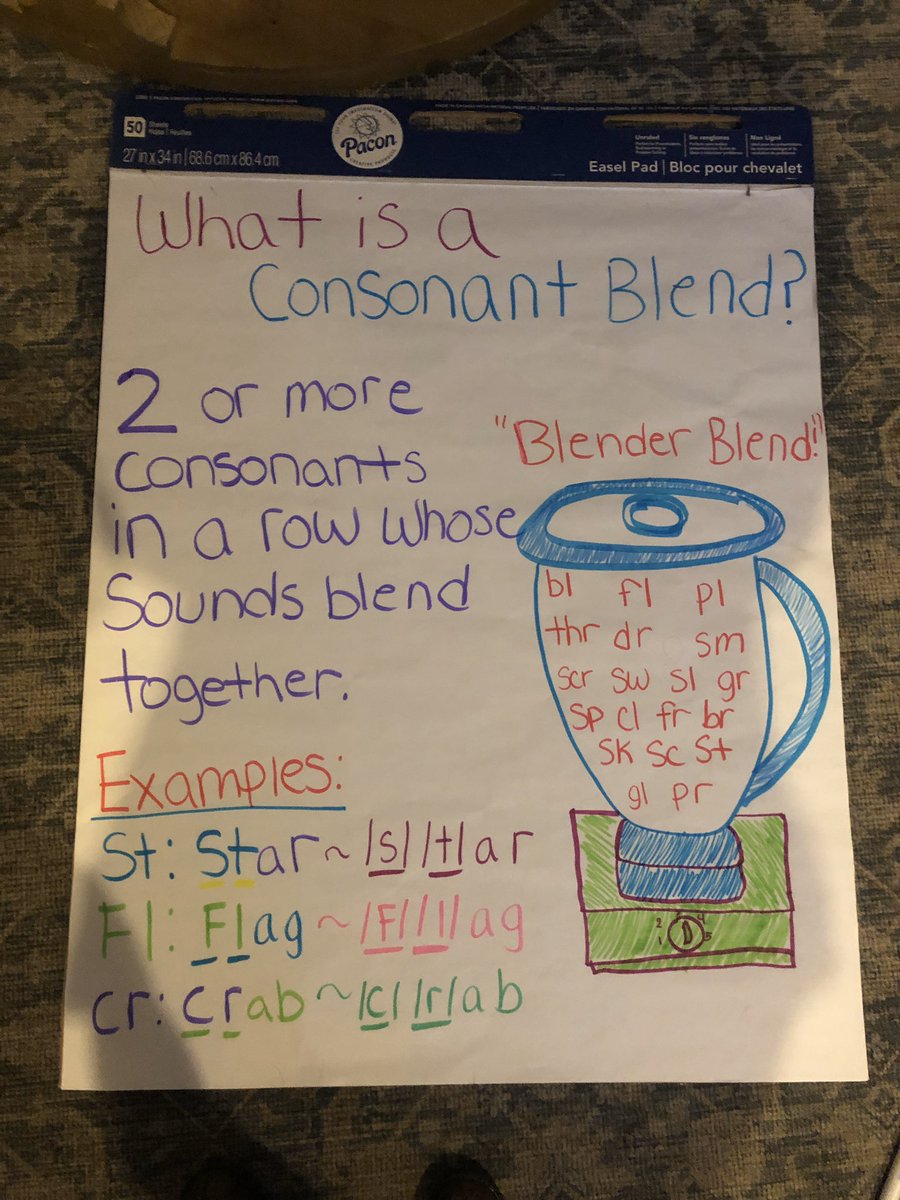 50 Sheets
Hojas | Feuilles
27 in x 34 in | 68.6 cm x 86.4 cm
Pacon
CREATIVE PRODUCTS
Unruled
Sin renglones
Non Ligné
Easel Pad | Bloc pour chevalet
What is a
Consonant Blend?
2 or more
consonants
in a row whose
Sounds blend
together.
Examples:
St: Star ~ |s| |t| ar
Fl: Flag ~ |F| |l| ag
cr: crab ~ |c| |r| ab
"Blender Blend!"
bl fl pl
thr dr sm
scr sw sl gr
sp cl fr br
sk sc st
gl pr
1 2 3 4 5
D